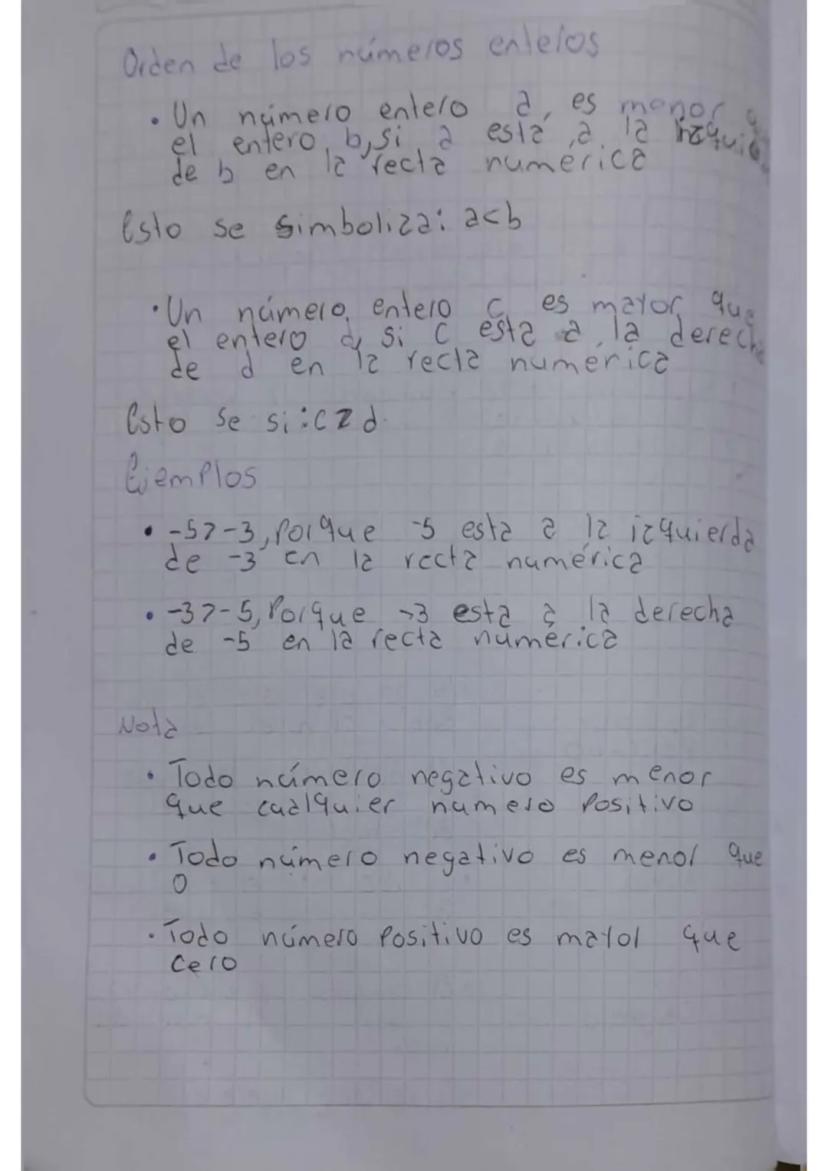 Orden de los números enteros
• Un número entero a, es menor q
el entero b, si a está a la izquier
de b en la recta numérica
Esto se simboliza: a<b
• Un número entero c es mayor que
el entero d, si c esta a la derecha
de d en la recta numérica
Esto se si: c>d
Ejemplos
• -5>-3, Porque -5 esta a la izquierda
de -3 en la recta numérica
• -3>-5, Porque -3 esta a la derecha
de -5 en la recta numérica
Nota
• Todo número negativo es menor
que cualquier numero Positivo
• Todo número negativo es menor que
0
• Todo número Positivo es mayor que
cero